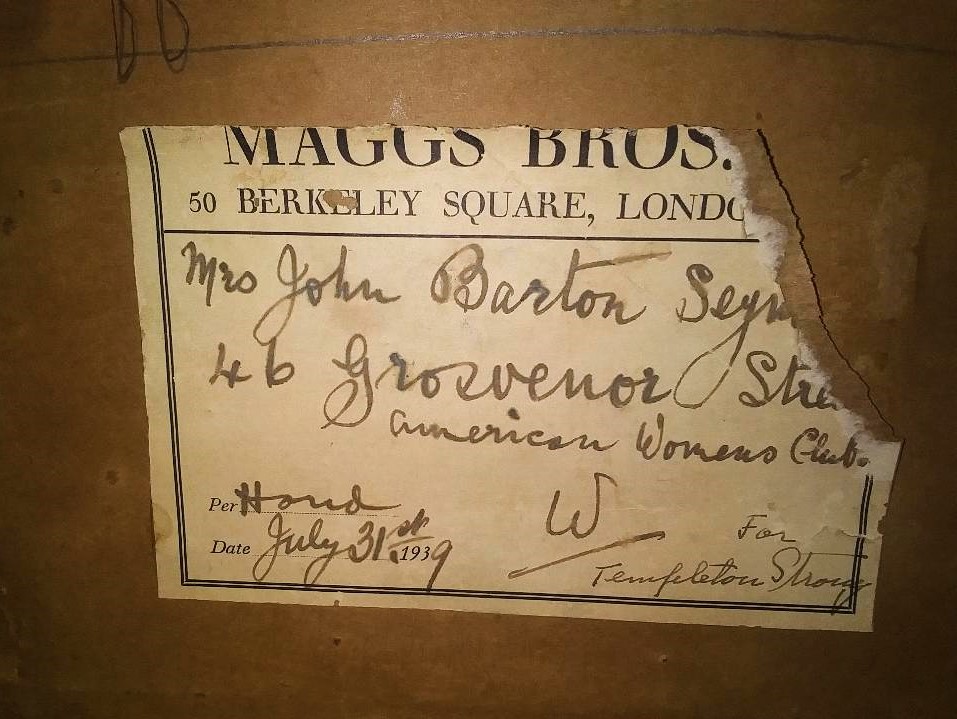 MAGGS BROS.
50 BERKELEY SQUARE, LONDO
Mrs John Barton Seym
46 Grosvenor Stre
American Womens Club.
Per Hand
W
For
Date July 31st 1939
Templeton Strong